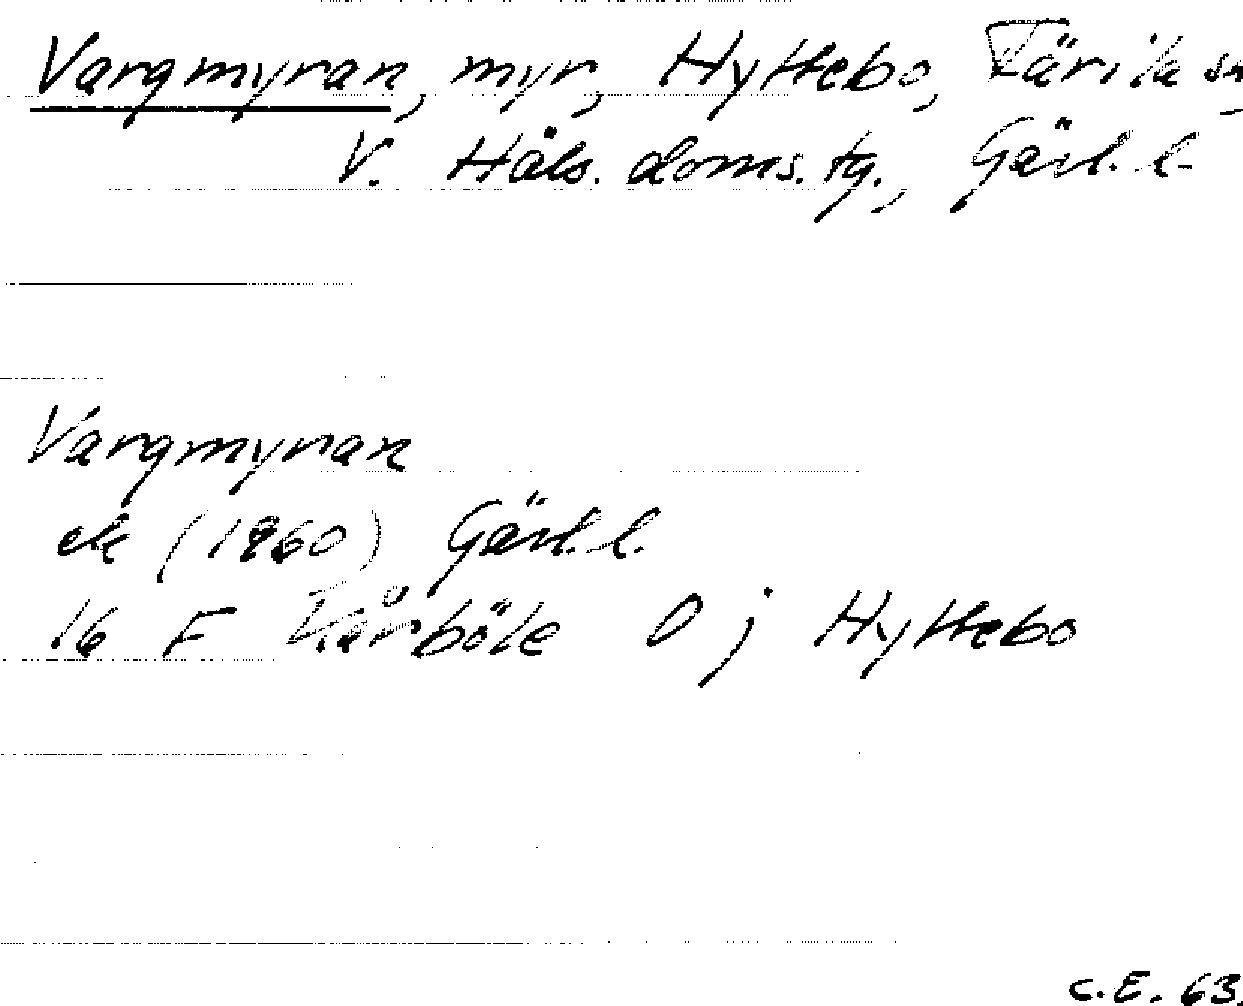 Vargmyran, myr, Hyttebo, Färila sn,
V. Häls. doms.tg., Gävl. l.
Vargmyran
ek (1960) Gävl. l.
16 F Kårböle O j Hyttebo
C.E. 63.